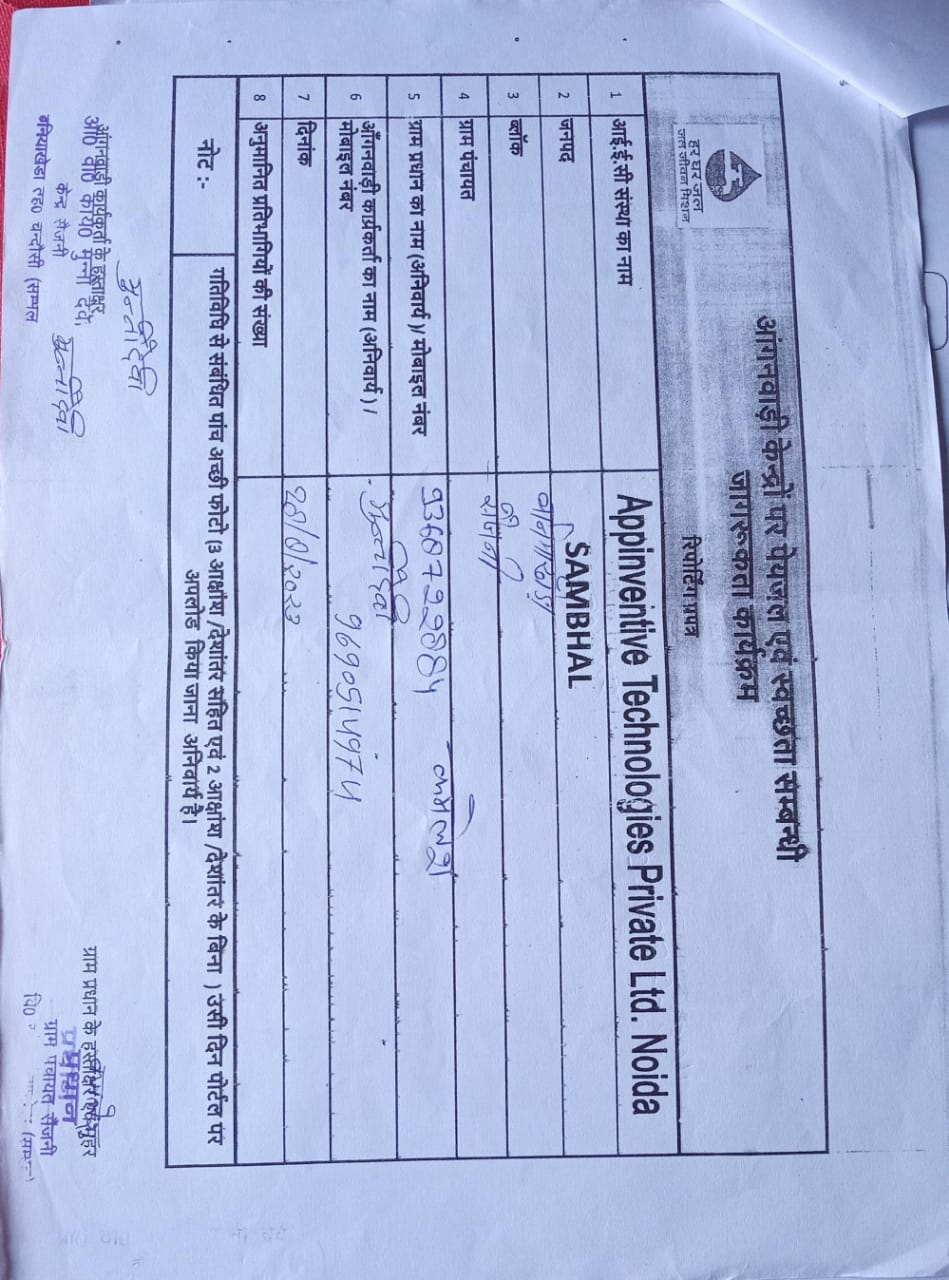 हर घर जल
जल जीवन मिशन
आंगनवाड़ी केन्द्रों पर पेयजल एवं स्वच्छता सम्बन्धी
जागरूकता कार्यक्रम
रिपोर्टिंग प्रपत्र
1 आई.ई.सी संस्था का नाम Appinventive Technologies Private Ltd. Noida
2 जनपद SAMBHAL
3 ब्लॉक
4 ग्राम पंचायत
5 ग्राम प्रधान का नाम (अनिवार्य)/ मोबाइल नंबर 9368722884 कमलेश
6 आँगनवाड़ी कार्यकर्ता का नाम (अनिवार्य) /
मोबाइल नंबर मुन्नी देवी 9690514974
7 दिनांक
8 अनुमानित प्रतिभागियों की संख्या
नोट :- गतिविधि से संबंधित पांच अच्छी फोटो (3 आक्षांष /देशांतर सहित एवं 2 आक्षांष /देशांतर के बिना ) उसी दिन पोर्टल पर
अपलोड किया जाना अनिवार्य है।
मुन्नी देवी
आंगनवाड़ी कार्यकर्ता के हस्ताक्षर
आं0 वा0 कार्य0 मुन्नी देवी
केन्द्र सैंजनी मुन्नी देवी
बनियाखेडा तह0 चन्दौसी (सम्भल
ग्राम प्रधान के हस्ताक्षर एवं मुहर
प्रधान
ग्राम पंचायत सैंजनी